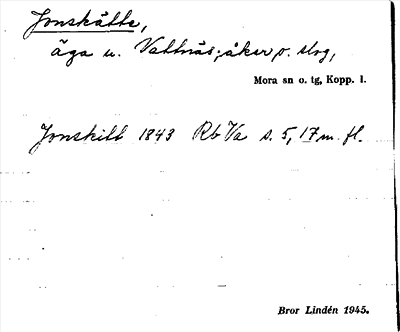 Jonskälla,
äga u. Vattnäs; åker o. skog,
Mora sn o. tg, Kopp. l.
Jonskill 1843 Rb Va s. 5, 17 m. fl.
Bror Lindén 1945.